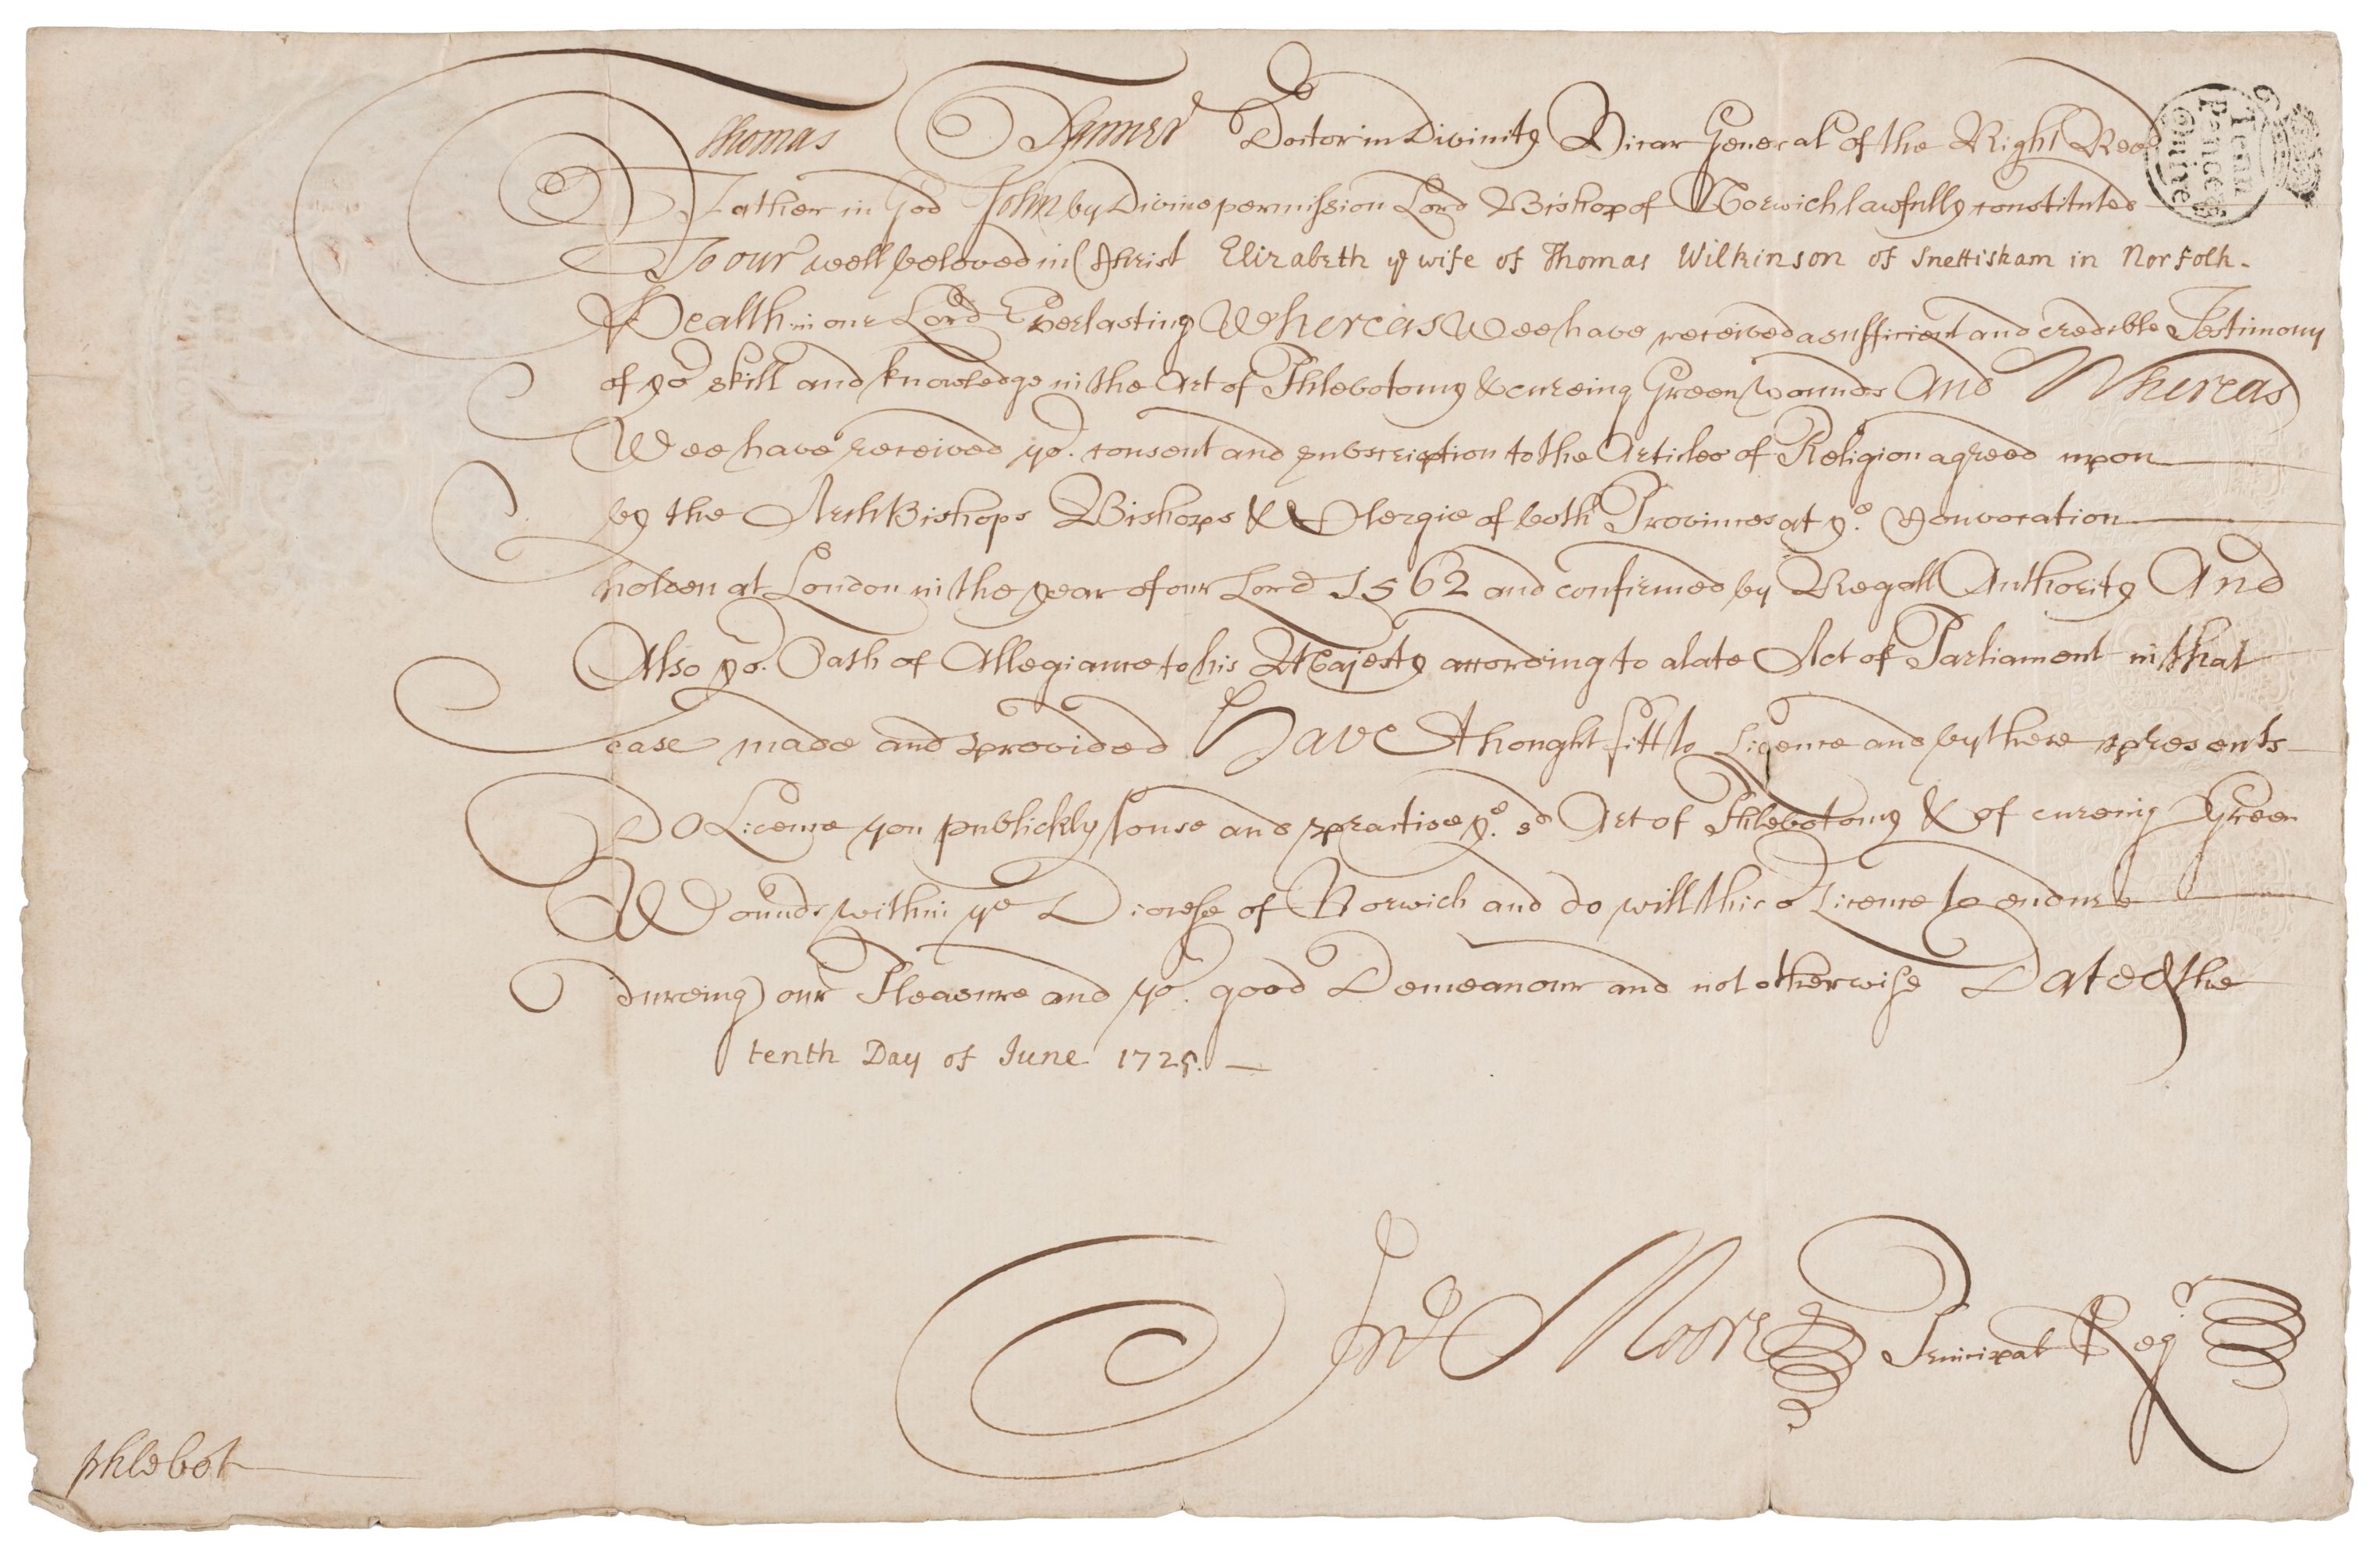 Thomas Tanner Doctor in Divinity Vicar General of the Right Revd
Father in God John by Divine permission Lord Bishop of Norwich lawfully constituted
To our well beloved in Christ Elizabeth ye wife of Thomas Wilkinson of Snettisham in Norfolk.
Health in our Lord Everlasting Whereas Wee have received a sufficient and credible Testimony
of yor skill and knowledge in the Art of Phlebotomy & cureing Green Wounds And Whereas
Wee have received yor. consent and subscription to the Articles of Religion agreed upon
by the ArchBishops Bishops & Clergie of both Provinces at ye. Convocation
holden at London in the year of our Lord 1562 and confirmed by Regall Authority And
Also yor. Oath of Allegiance to his Majesty according to a late Act of Parliament in that
case made and provided Have thought fitt to Licence and by these presents
Do Licence you publickly to use and practise ye. sd Art of Phlebotomy & of cureing Green
Wounds within ye Diocese of Norwich and do will this Licence to endure
dureing our Pleasure and yor. good Demeanour and not otherwise Dated the
tenth Day of June 1725.
Jno Moore Principal Regr
phlebot